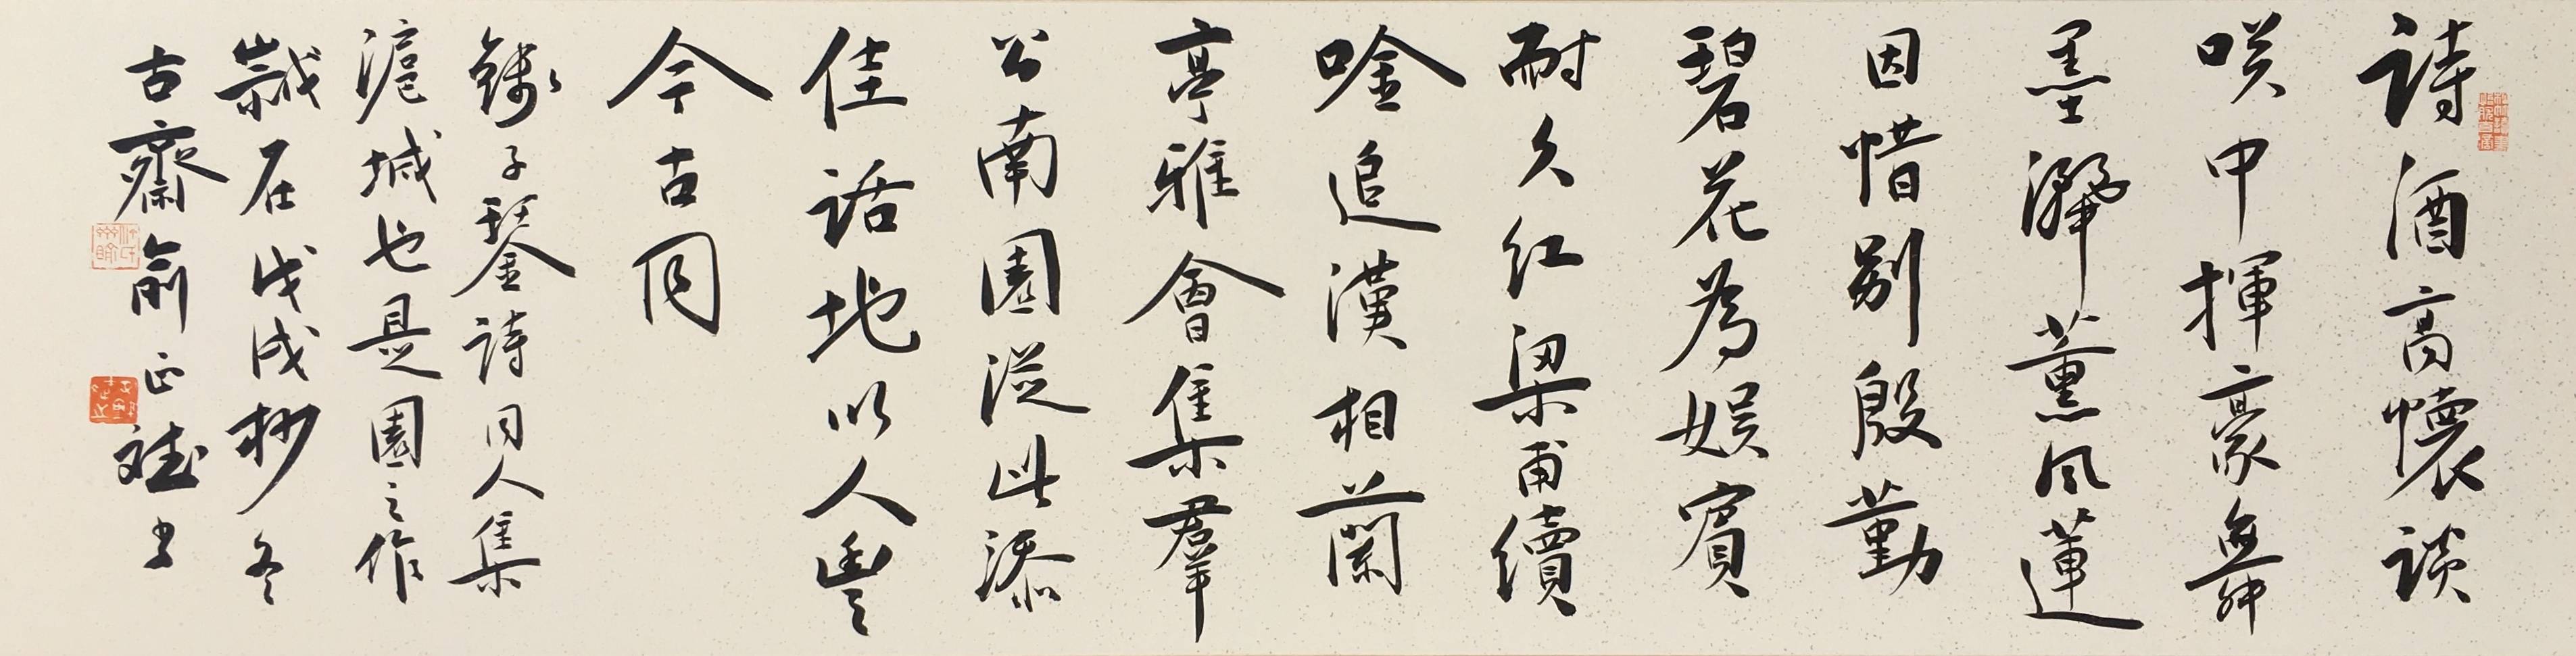 詩酒高懷談
咲中揮豪舞
墨薰風蓮
因惜別殷勤
碧花為娛賓
耐久紅梁甫續
唫追漢相蘭
亭雅會集羣
公南園從此添
佳話地以人豐
今古同
錄子詩同人集
滬城也是園之作
歲在戊戌杪冬
古齋俞正斌書